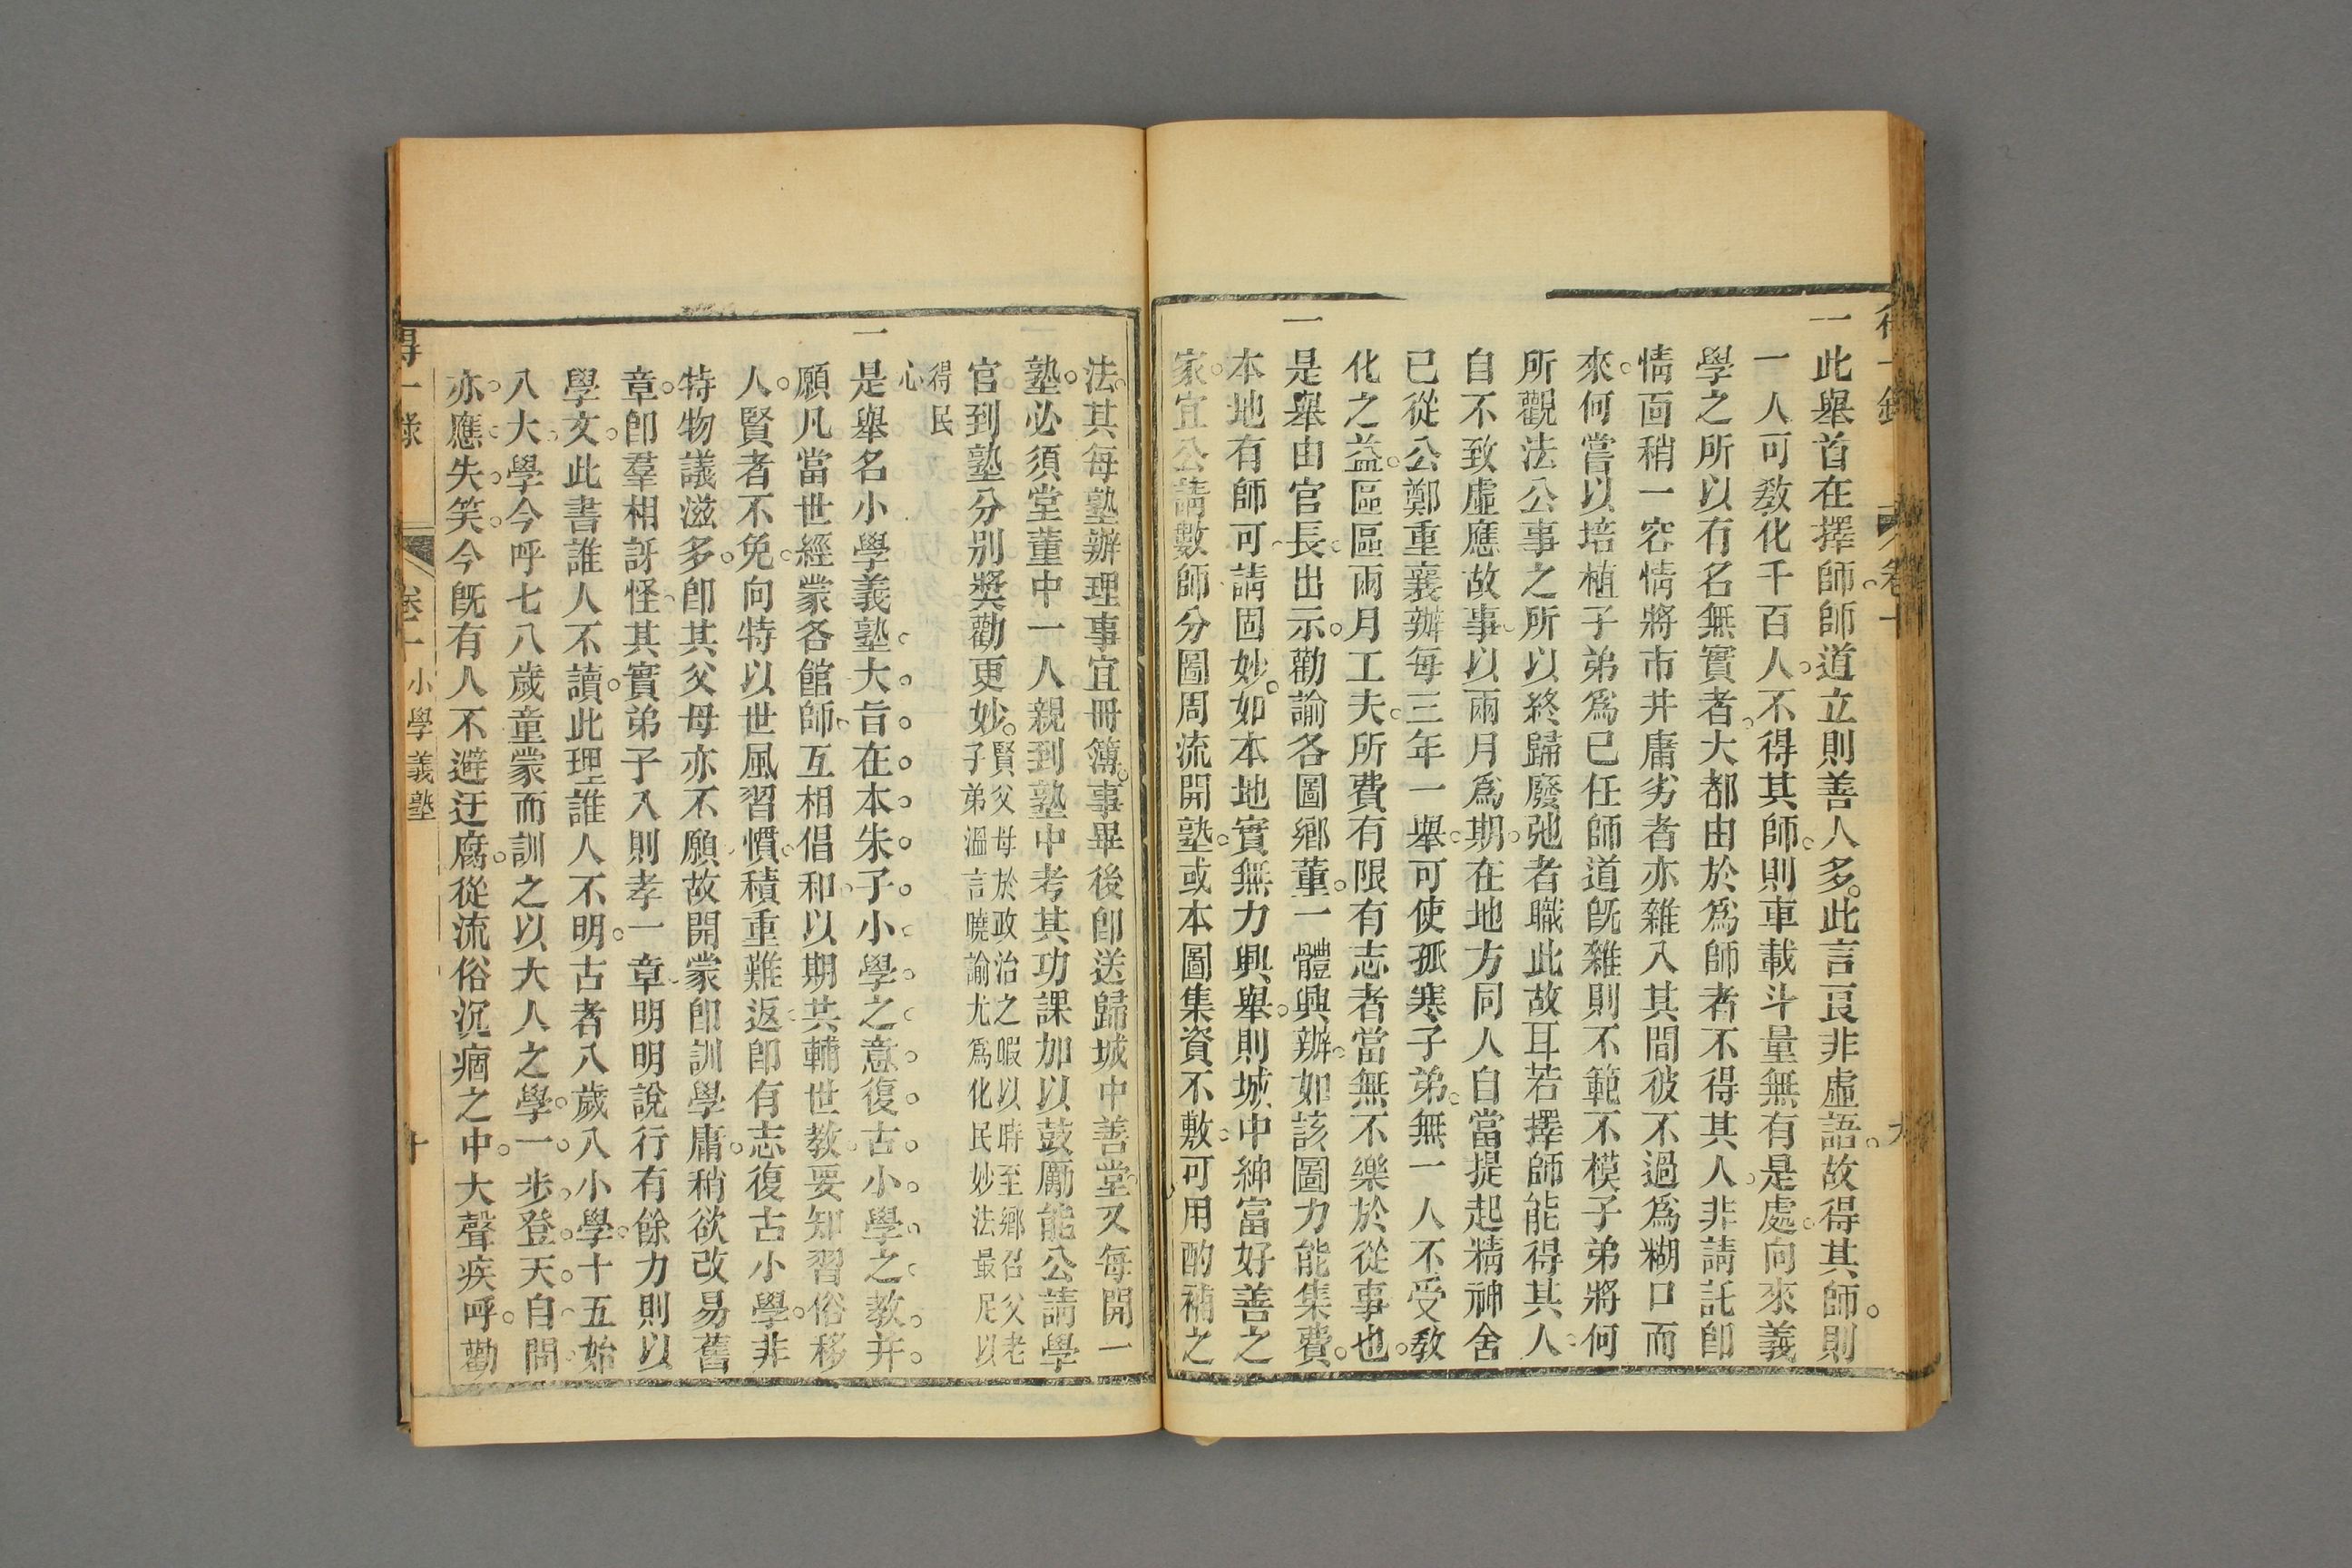 一此舉首在擇師師道立則善人多此言良非虛語故得其師則
一人可教化千百人不得其師則車載斗量無有是處向來義
學之所以有名無實者大都由於爲師者不得其人非請託卽
情面稍一容情將市井庸劣者亦雜入其間彼不過爲糊口而
來何嘗以培植子弟爲已任師道旣雜則不範不模子弟將何
所觀法公事之所以終歸廢弛者職此故耳若擇師能得其人
自不致虛應故事以兩月爲期在地方同人自當提起精神舍
已從公鄭重襄辦每三年一舉可使孤寒子弟無一人不受教
化之益區區兩月工夫所費有限有志者當無不樂於從事也
一是舉由官長出示勸諭各圖鄉董一體興辦如該圖力能集費
本地有師可請固妙如本地實無力興舉則城中紳富好善之
家宜公請數師分圖周流開塾或本圖集資不敷可用酌補之
法其每塾辦理事宜冊簿事畢後卽送歸城中善堂又每開一
塾必須堂董中一人親到塾中考其功課加以鼓勵能公請學
官到塾分別獎勸更妙賢父母於政治之暇以時至鄉召父老
子弟溫言曉諭尤爲化民妙法最足以
得民
心
一是舉名小學義塾大旨在本朱子小學之意復古小學之教并
願凡當世經蒙各館師互相倡和以期共輔世教要知習俗移
人賢者不免向特以世風習慣積重難返卽有志復古小學非
特物議滋多卽其父母亦不願故開蒙卽訓學庸稍欲改易舊
章卽羣相訝怪其實弟子入則孝一章明明說行有餘力則以
學文此書誰人不讀此理誰人不明古者八歲入小學十五始
入大學今呼七八歲童蒙而訓之以大人之學一步登天自問
亦應失笑今旣有人不避迂腐從流俗沉痼之中大聲疾呼勸
得一錄
卷十
小學義塾
十